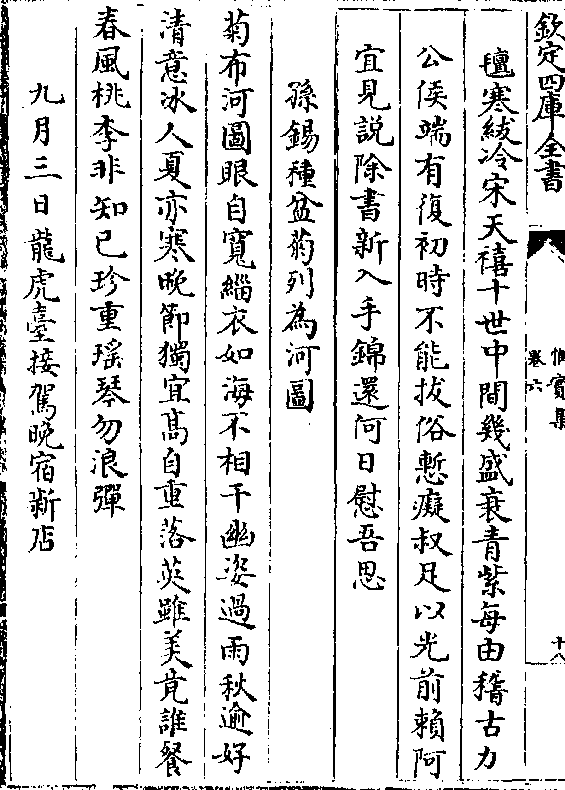 欽定四庫全書
卷六
十八
氊寒紱冷宋天禧十世中間幾盛衰青紫每由稽古力
公侯端有復初時不能拔俗慙癡叔足以光前賴阿
宜見說除書新入手錦還何日慰吾思
孫錫種盆菊列為河圖
菊布河圖眼自寬緇衣如海不相干幽姿過雨秋逾好
清意冰人夏亦寒晚節獨宜髙自重落英雖美竟誰餐
春風桃李非知已珍重瑶琴勿浪彈
九月三日龍虎臺接駕晚宿新店